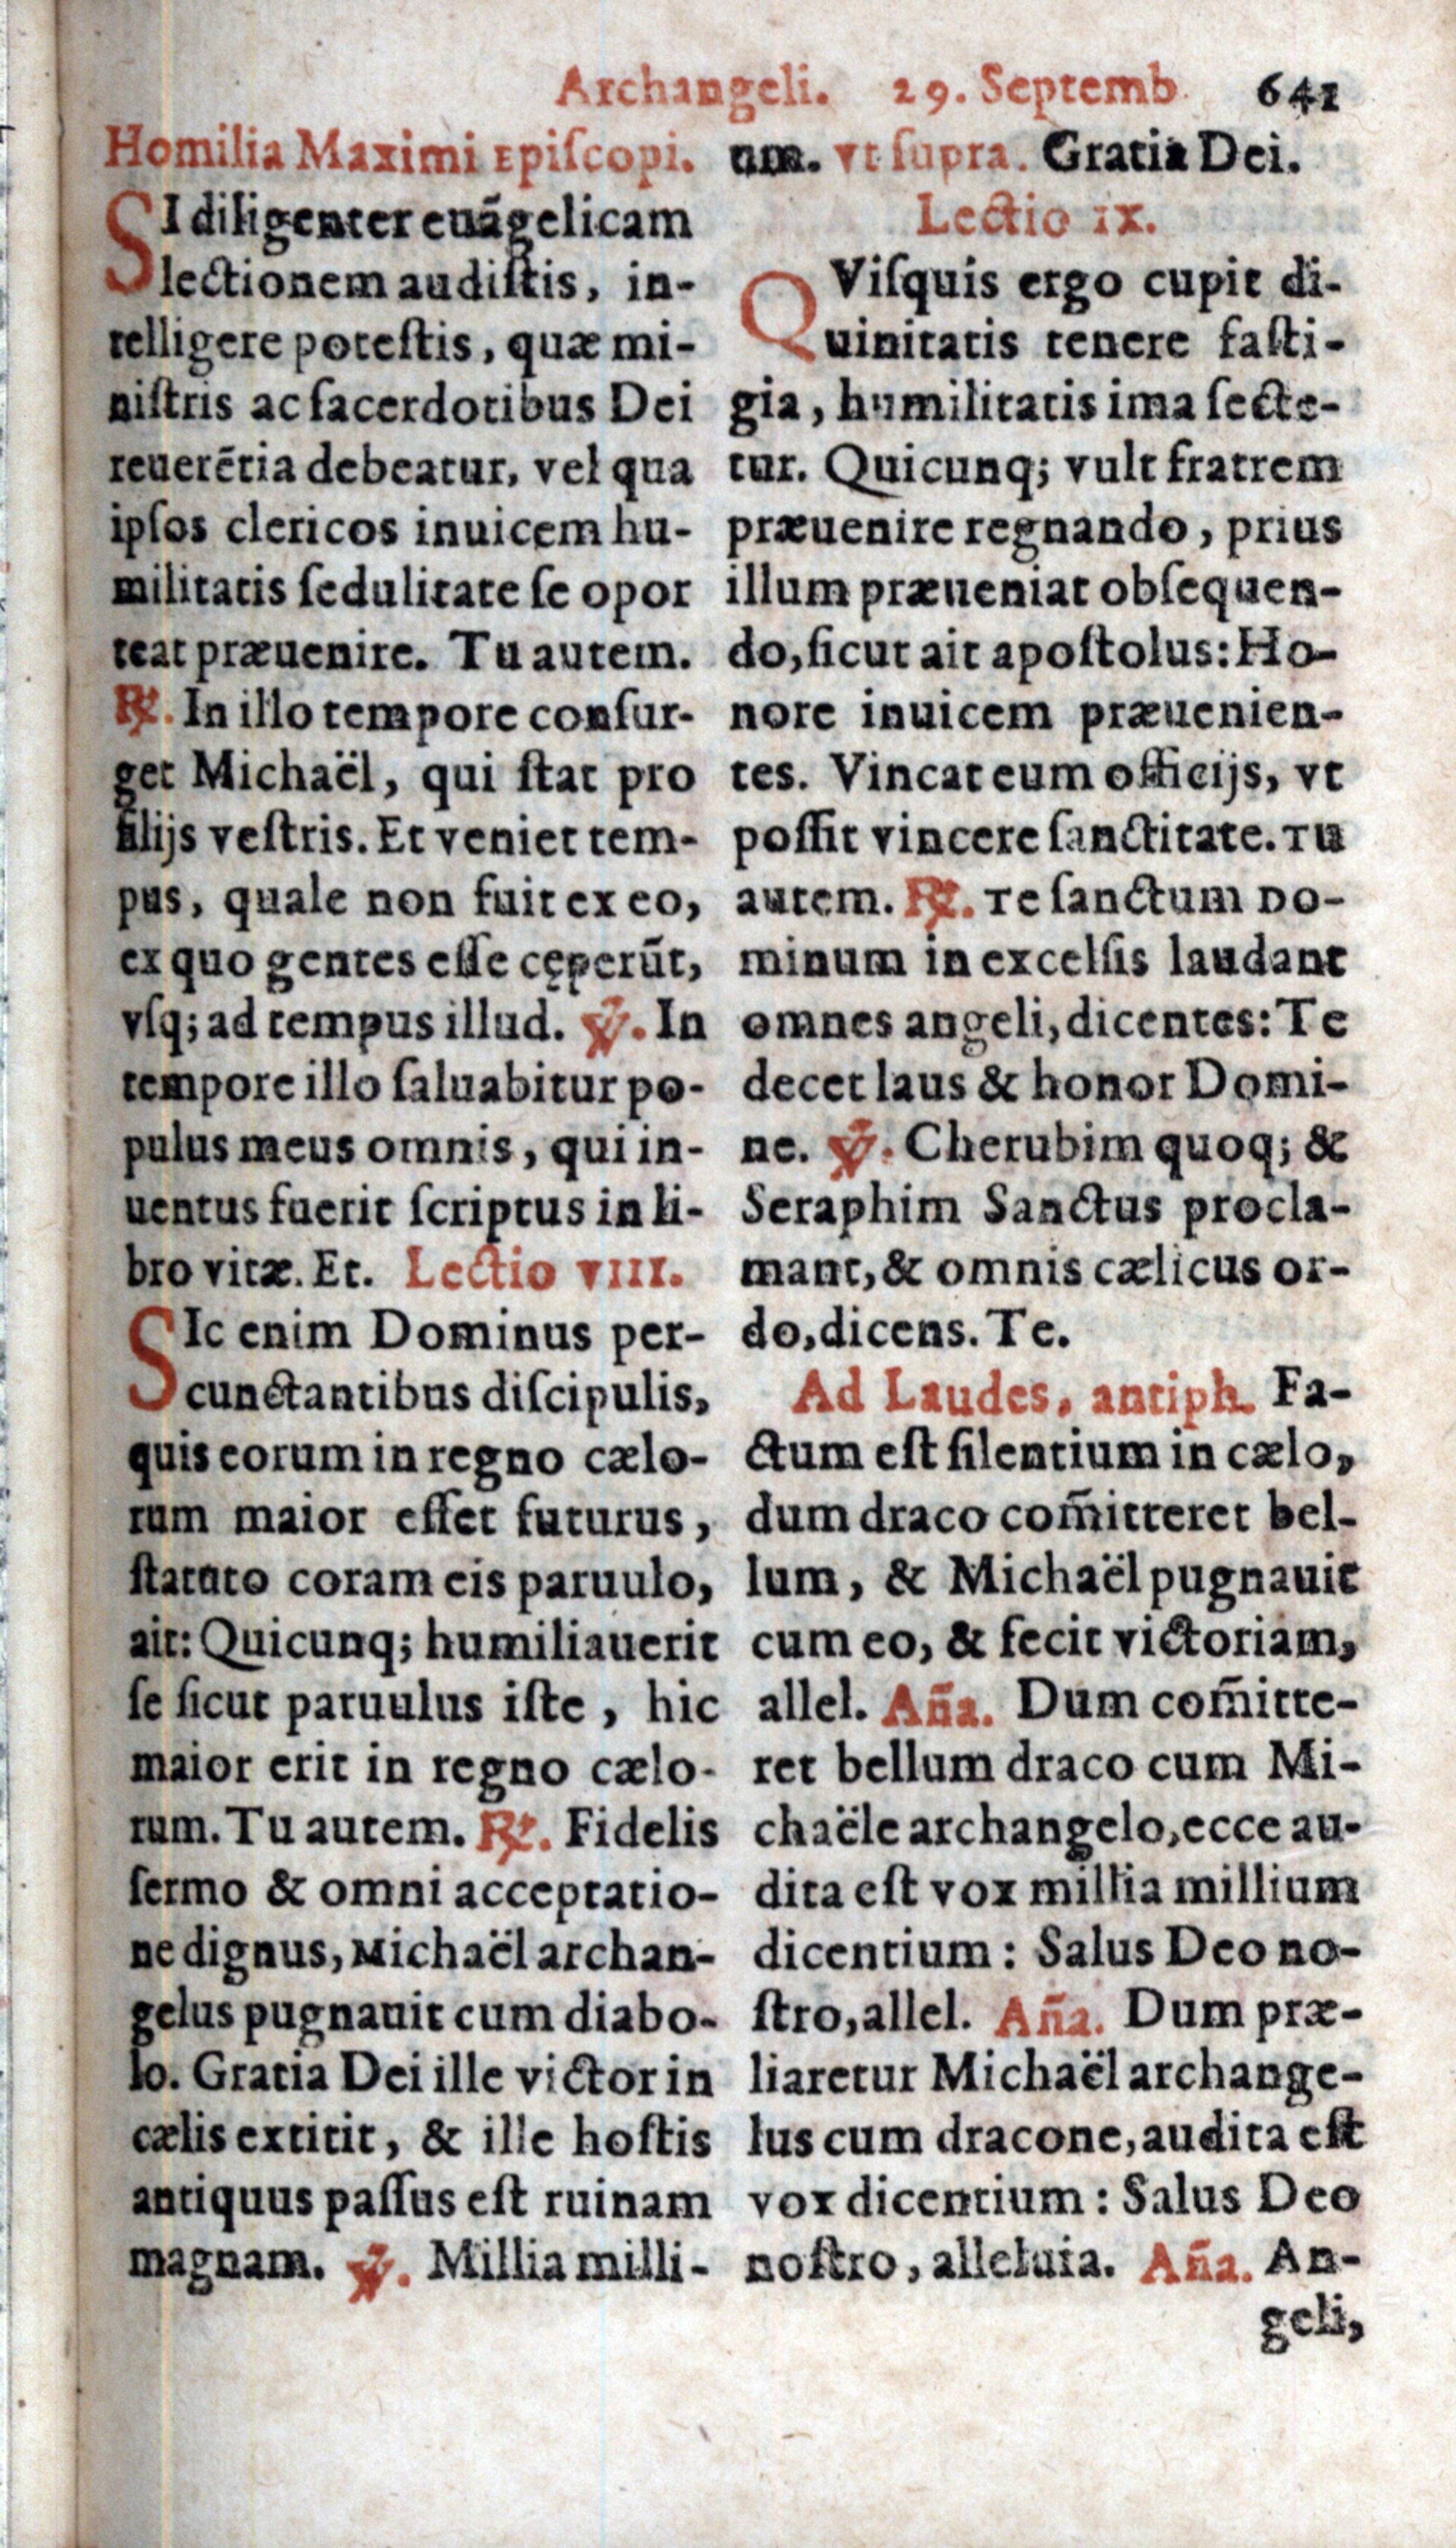 Archangeli. 29. Septemb. 641
Homilia Maximi Epiſcopi.
SI diligenter euãgelicam
lectionem audiſtis, in-
telligere poteſtis, quæ mi-
niſtris ac ſacerdotibus Dei
reuerẽtia debeatur, vel qua
ipſos clericos inuicem hu-
militatis ſedulitate ſe opor
teat præuenire. Tu autem.
℟. In illo tempore conſur-
get Michaël, qui ſtat pro
filijs veſtris. Et veniet tem-
pus, quale non fuit ex eo,
ex quo gentes eſſe cęperũt,
vſq; ad tempus illud. ℣. In
tempore illo ſaluabitur po-
pulus meus omnis, qui in-
uentus fuerit ſcriptus in li-
bro vitæ. Et. Lectio VIII.
SIc enim Dominus per-
cunctantibus diſcipulis,
quis eorum in regno cælo-
rum maior eſſet futurus,
ſtatuto coram eis paruulo,
ait: Quicunq; humiliauerit
ſe ſicut paruulus iſte, hic
maior erit in regno cælo-
rum. Tu autem. ℟. Fidelis
ſermo & omni acceptatio-
ne dignus, Michaël archan-
gelus pugnauit cum diabo-
lo. Gratia Dei ille victor in
cælis extitit, & ille hoſtis
antiquus paſſus eſt ruinam
magnam. ℣. Millia milli-
um. vt ſupra. Gratia Dei.
Lectio IX.
QViſquis ergo cupit di-
uinitatis tenere faſti-
gia, humilitatis ima ſecte-
tur. Quicunq; vult fratrem
præuenire regnando, prius
illum præueniat obſequen-
do, ſicut ait apoſtolus: Ho-
nore inuicem præuenien-
tes. Vincat eum officijs, vt
poſſit vincere ſanctitate. Tu
autem. ℟. Te ſanctum Do-
minum in excelſis laudant
omnes angeli, dicentes: Te
decet laus & honor Domi-
ne. ℣. Cherubim quoq; &
Seraphim Sanctus procla-
mant, & omnis cælicus or-
do, dicens. Te.
Ad Laudes, antiph. Fa-
ctum eſt ſilentium in cælo,
dum draco com̃itteret bel-
lum, & Michaël pugnauit
cum eo, & fecit victoriam,
allel. Aña. Dum com̃itte-
ret bellum draco cum Mi-
chaële archangelo, ecce au-
dita eſt vox millia millium
dicentium: Salus Deo no-
ſtro, allel. Aña. Dum præ-
liaretur Michaël archange-
lus cum dracone, audita eſt
vox dicentium: Salus Deo
noſtro, alleluia. Aña. An-
geli,